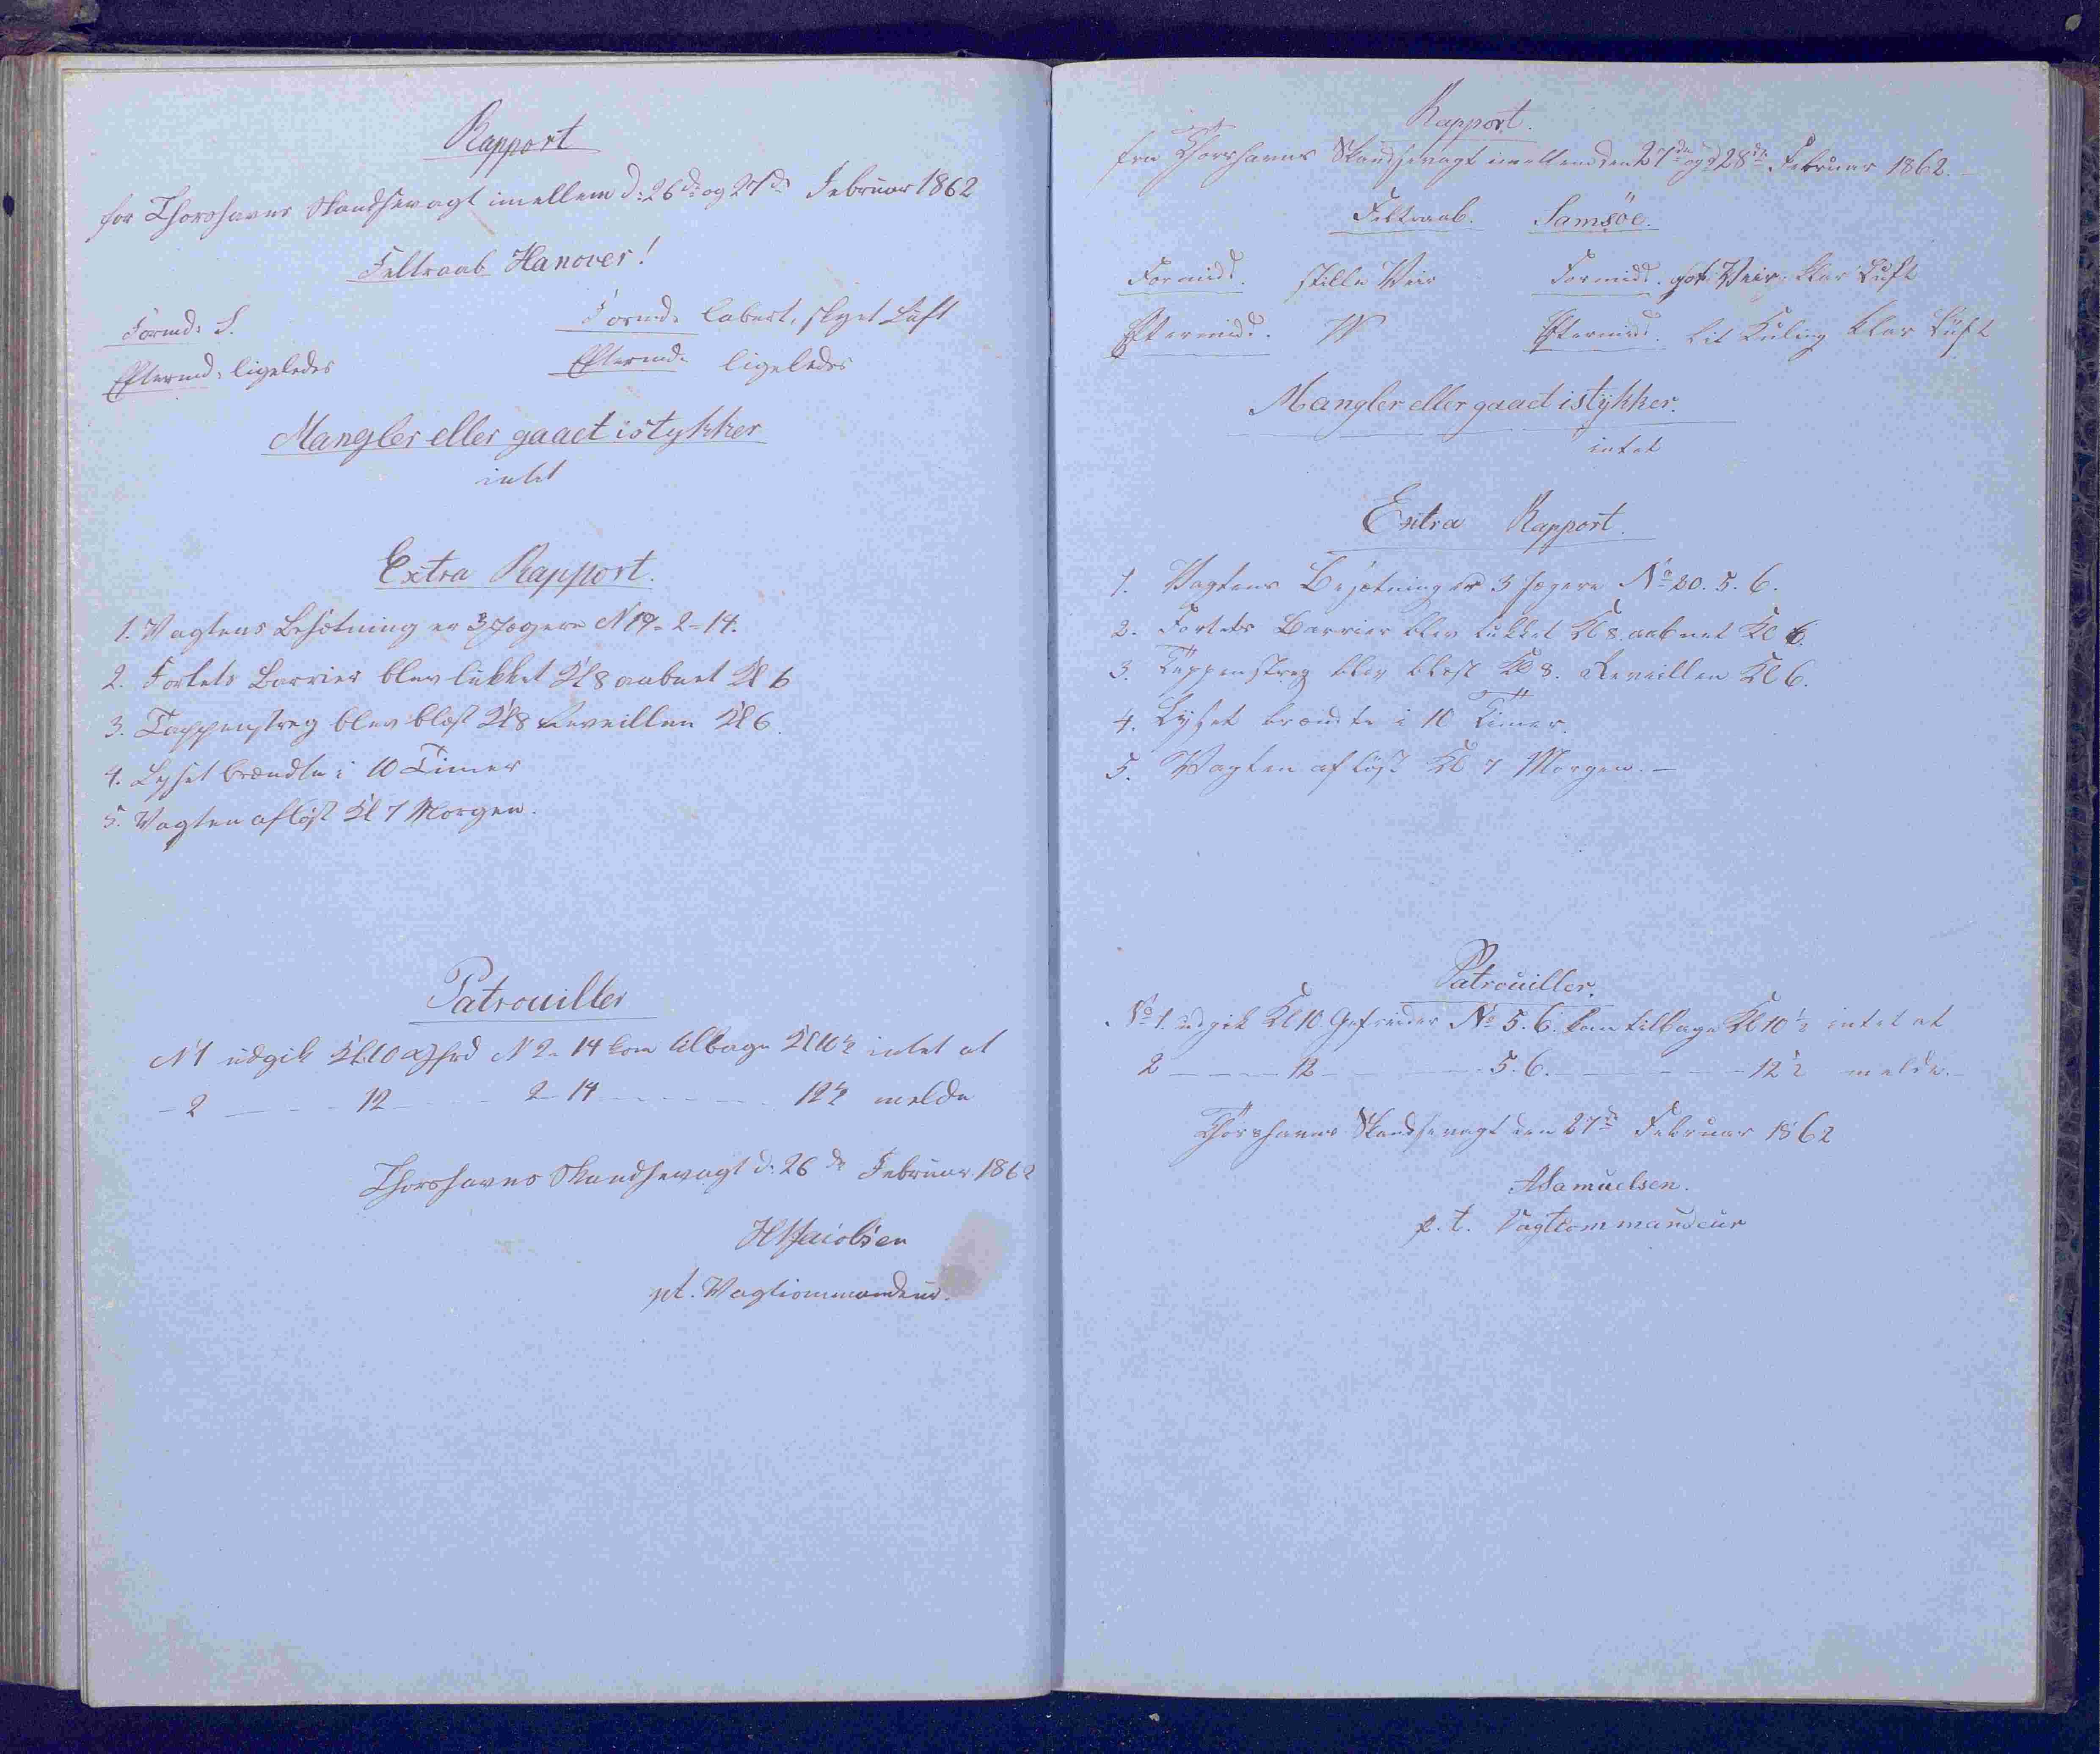 Rapport
for Thorshavns Skandsevagt imellem d: 26de og 27de Februar 1862
Feltraab Hanover!
Formd: S. Formd: labert, skyet Luft
Eftermd: ligeledes Eftermd: ligeledes
Mangler eller gaaet istykker
intet
Extra Rapport.
1. Vagtens Besætning er 3 Jægere N 19- 2- 14.
2. Fortets Barrier blev lukket Kl 8 aabnet Kl 6
3. Tappenstreg blev blæst Kl 8 Reveillen Kl 6.
4. Lyset brændte i 10 Timer
5. Vagten afløst Kl 7 Morgen.
Patrouiller
N 1 udgik Kl. 10 N 2- 14 kom tilbage Kl 10½ intet at
- 2 - - - - 12 - - - - 2- 14 - - - - - - - 12½ melde
Thorshavns Skandsevagt d: 26de Februar 1862
Jacobsen
pt. Vagtcommandeur.
Rapport.
fra Thorshavns Skandsevagt imellem den 27de og 28de Februar 1862.
Feltraab. Samsöe.
Formidd. stille Veir Formidd. got Veir klar Luft
Eftermidd. W Eftermidd. lit Kuling klar Luft
Mangler eller gaaet istykker.
intet
Extra Rapport.
1. Vagtens Besætning er 3 Jægere No 20. 5. 6.
2. Fortets Barrier blev lukket Kl 8 aabnet Kl 6.
3. Tappenstreg blev blæst Kl 8. Reveillen Kl 6.
4. Lyset brændte i 10 Timer.
5. Vagten afløst Kl 7 Morgen. -
Patrouiller.
No 1. udgik Kl 10. Gefreider No 5. 6. kom tilbage Kl 10½ intet at
2 - - - - 12 - - - - 5. 6. - - - - - - 12½ melde.
Thorshavns Skandsevagt den 27de Februar 1862
ASamuelsen.
p.t. Vagtcommandeur